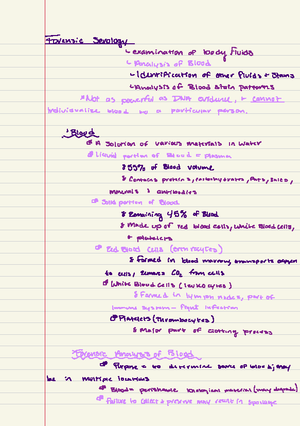 Forensic Serology
↳ examination of body Fluids
↳ Analysis of Blood
↳ Identification of other Fluids + Stains
↳ Analysis of Blood Stain patterns
*Not as powerful as DNA evidence, + cannot
individualize blood to a particular person.
Blood
A Solution of various materials in water
Liquid portion of Blood = plasma
55% of Blood volume
Contains proteins, carbohydrates, fats, Salts,
minerals & antibodies
Solid portion of Blood
Remaining 45% of Blood
Made up of red blood cells, white Blood cells,
+ platelets
Red Blood Cells (erythrocytes)
Formed in blood marrow, transports oxygen
to cells, removes CO₂ from cells
White Blood Cells (leukocytes)
Formed in lymph nodes, part of
immune system – fight infection
Platelets (Thrombocytes)
Major part of clotting process
Forensic Analysis of Blood
Purpose = to determine source of blood; may
be in multiple locations
Blood = perishable biological material (may degrade)
Failure to collect & preserve may result in spoilage